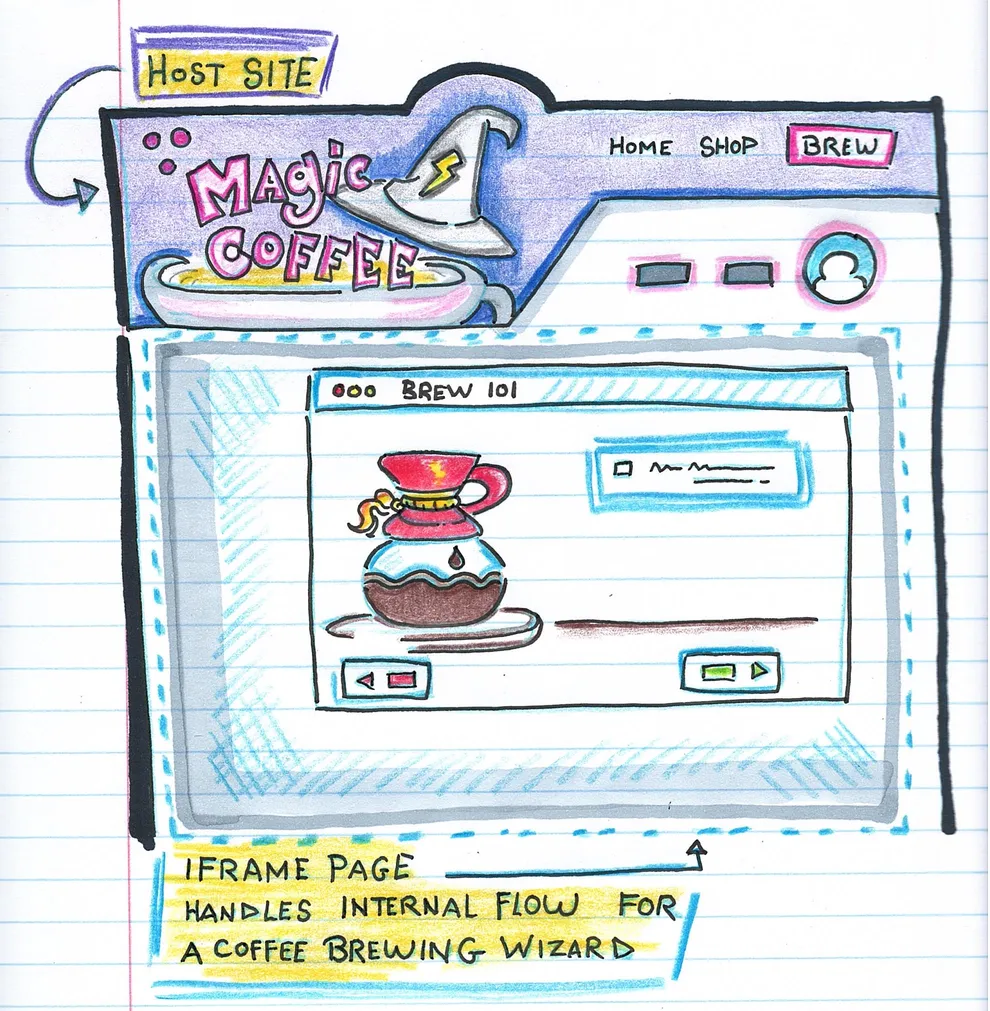 HOST SITE
MAgic
COFFEE
HOME SHOP BREW
BREW 101
IFRAME PAGE
HANDLES INTERNAL FLOW FOR
A COFFEE BREWING WIZARD